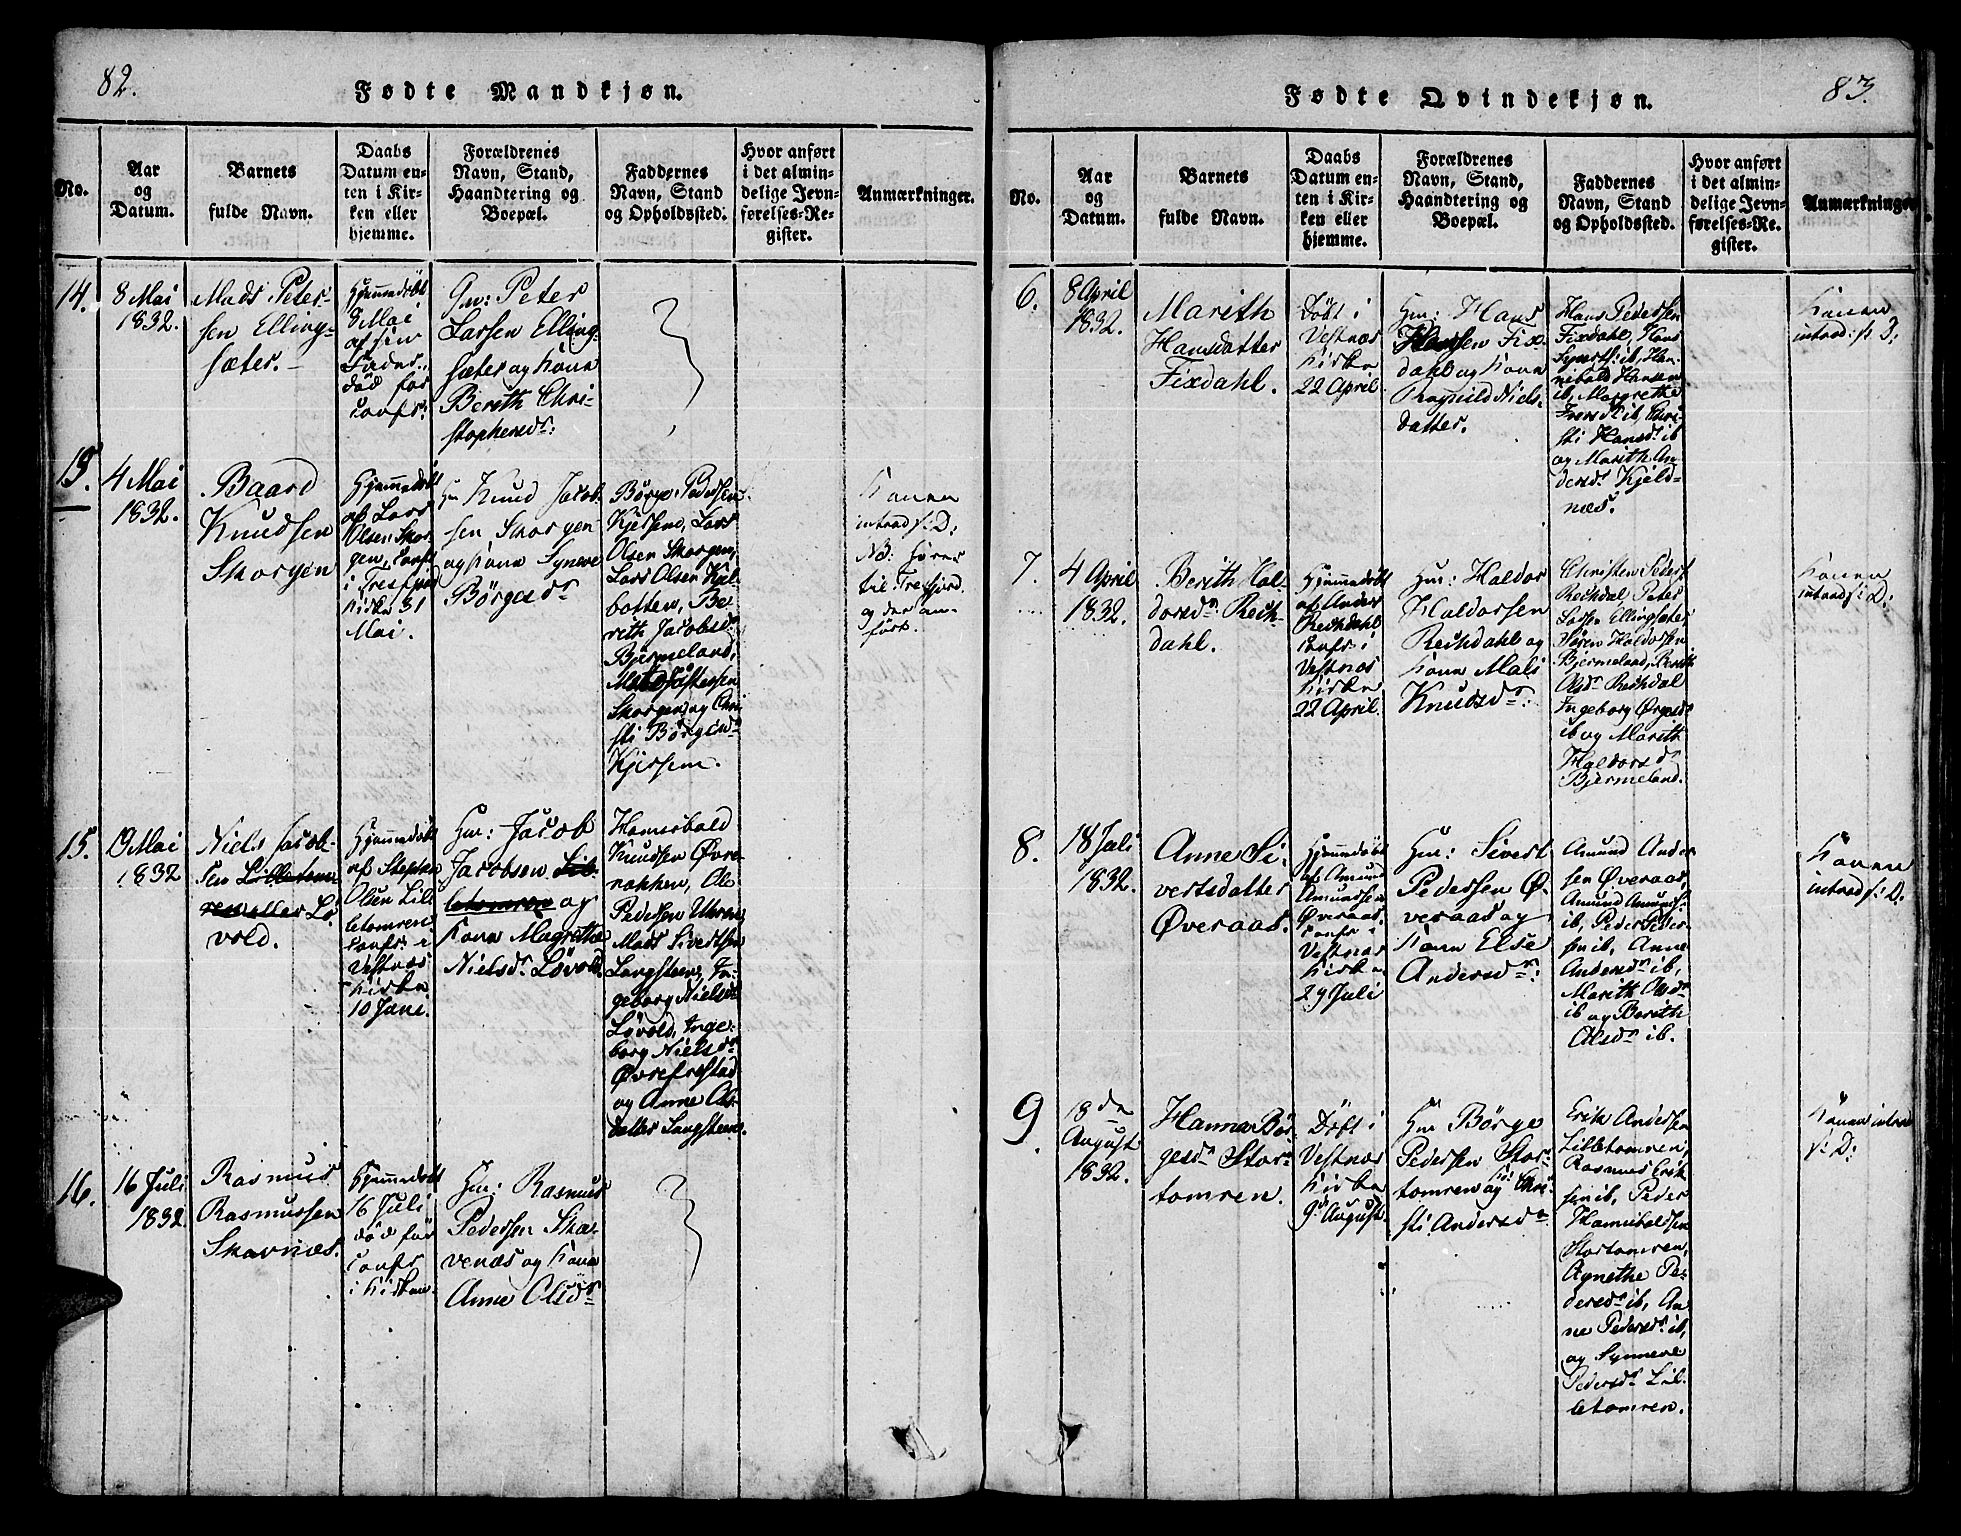 82.
Fødte Mandkjøn.
No.
Aar
og
Datum.
Barnets
fulde Navn.
Daabs
Datum en-
ten i Kir-
ken eller
hjemme.
Forældrenes
Navn, Stand,
Haandtering og
Boepæl.
Faddernes
Navn, Stand
og Opholdssted.
Hvor anført
i det almin-
delige Jevn-
førelses-Re-
gister.
Anmærkninger.
14.
8 Mai
1832.
Mads Peter-
sen Elling-
sæter.
Hjemmedöbt
8 Mai
af sin
Fader.,
död for
Confr:
Gm: Peter
Larsen Elling-
sæter og Kone
Berith Chri-
stophersdr:
15.
4 Mai
1832.
Baard
Knudsen
Skorgen
Hjemmedöbt
af Lars
Olsen Skor-
gen, Confr
i Tresfiord
Kirke 31
Mai.
Gm Knud Jacob-
sen Skorgen
og Kone Syneve
Börgesdr
Börge Pedersen
Kjersem, Lars
Olsen Skorgen,
Lars Olsen Kjel-
botten, Be
reth Jacobsdr
Bjermeland,
Skorgen og Chri
sti Börgesdr
Kjersem.
Konen
introd s: D:
NB: hörer
til Tresfjord
og der an-
fört.
15.
19 Mai
1832
Niels Jacob-
sen Lilletom
ren eller Lö
vold.
Hjemmedöbt
af Stephen
Olsen Lil-
letomren
Confr: i
Vestnæs
Kirke
10 Juni.
Gm: Jacob
Jacobsen Lil-
letomren og
Kone Magrethe
Nielsdr Lövold
Hannibald
Knudsen Øvre-
nakken, Ole
Pedersen Uhren
Mads Sivertsen
Langsteen, In-
geborg Nielsdr
Lövold, Inge-
borg Nielsdr
Øvrefrostad
og Anne Ols-
datter Langsteen.
16.
16 Juli
1832
Rasmus
Rasmussen
Skavnæs.
Hjemmedöbt
16 Juli
död för
Confr
i Kirken.
Gm: Rasmus
Pedersen Ska-
venæs og Kone
Anne Olsdr
83.
Fødte Qvindekjøn.
No.
Aar
og
Datum.
Barnets
fulde Navn.
Daabs
Datum en-
ten i Kir-
ken eller
hjemme.
Forældrenes
Navn, Stand,
Haandtering og
Boepæl.
Faddernes
Navn, Stand
og Opholdssted.
Hvor anført
i det almin-
delige Jevn-
førelses-Re-
gister.
Anmærkninger
6.
8 April
1832.
Marith
Hansdatter
Fixdahl.
Döbt i
Vestnæs
Kirke
22 April
Gm: Hans
Hansen Fix-
dahl og Kone
Ragnild Niels-
datter.
Hans Pedersen
Fixdahl, Hans
Syvertsr: ib, Han-
nibald Hansen
ib, Margrethe
Iversdr: ib, Chri-
sti Hansdr ib
og Marith An
dersdr Kjeld-
næs.
Konen
introd: s: D:
7.
4 April
1832.
Berith Hal-
dorsdr: Rech-
dahl.
Hjemmedöbt
af Anders
Rechdahl
Confr: i
Vestnæs
Kirke
22 April.
Gm: Haldor
Haldorsen
Rechdahl og
Kone Mali
Knudsdr:
Christen Peders
Rechdal Peter
Larsen Ellingsæter,
Sören Haldorsen
Bjermeland, Berith
Olsdr Rechdal
Ingeborg Ørgesdr
ib og Marith
Haldorsdr
Bjermeland.
Konen
introd s: D:
8.
18 Juli
1832.
Anne Si-
vertsdatter
Øveraas.
Hjemmedöbt
af Amund
Amundsen
Øveraas,
Confr i
Vestnæs
Kirke
29 Juli
Gm: Sivert
Pedersen Ø-
veraas og
Kone Else
Andersdr:
Amund Ander
sen Øveraas,
Amund Amunds:
ib, Peder Peder
sen ib, Anne
Andersdr ib,
Marith Olsdr
ib og Berith
Olsdr ib.
Konen
introd s: D:
9.
18de
August
1832.
Hanna Bör-
gesdr Stor-
tomren.
Döbt i
Vestnæs
Kirke
9d August
Gm Börge
Pedersen Stor-
tomren og Ko: Chri-
sti Andersdr
Erik Andersen
Lilletomren,
Rasmus Erik
sen ib, Peder
Hannibaldsen
Stortomren,
Agnethe Pe-
dersdr ib, An
ne Pedersdr: ib,
og Synneve
Pedersdr Lil-
letomren.
Konen introd
s: D: